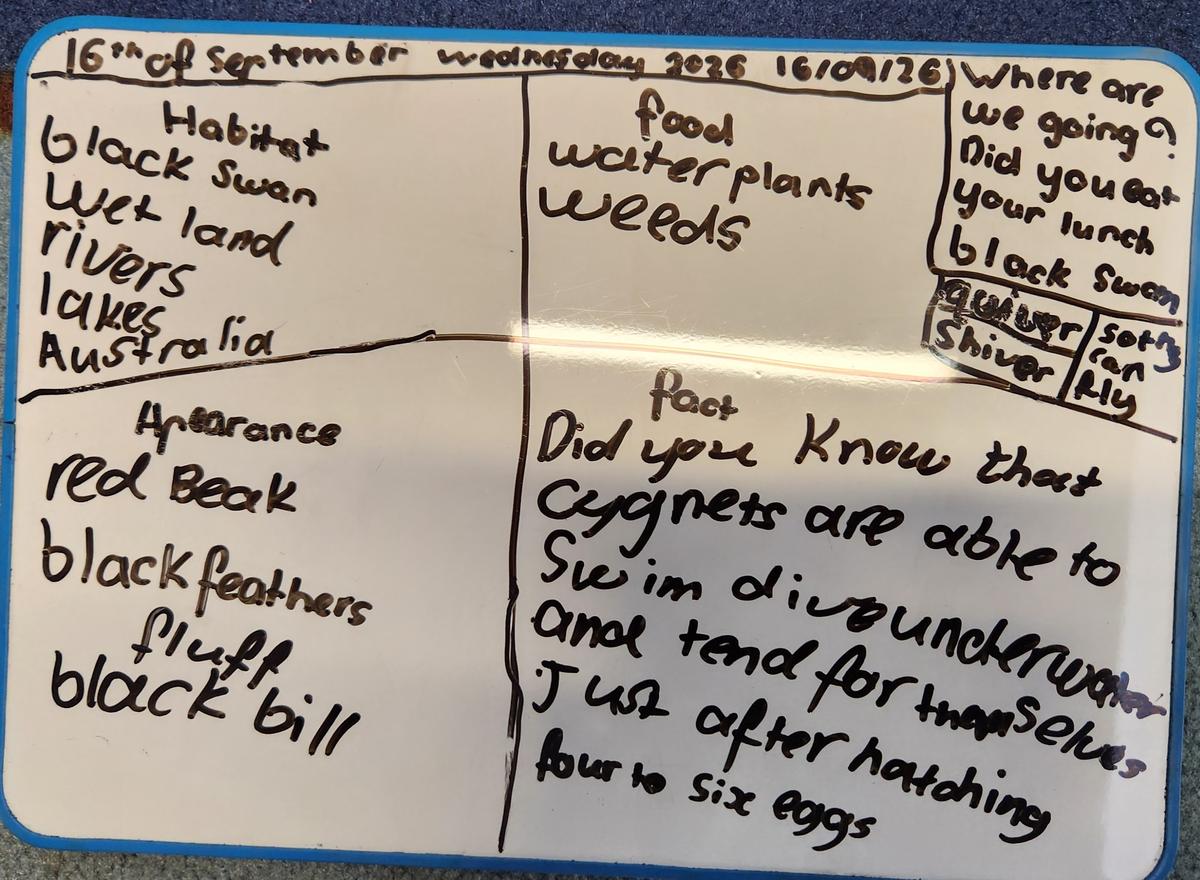 16th of September wednesday 2026 16/09/26
Where are
we going?
Did you eat
your lunch
black swan
quiver
Shiver
sorry
can
fly
Habitat
black swan
Wet land
rivers
lakes
Australia
food
water plants
weeds
Apearance
red Beak
black feathers
fluff
black bill
fact
Did you Know that
cygnets are able to
Swim dive underwater
and tend for themselves
Just after hatching
four to six eggs